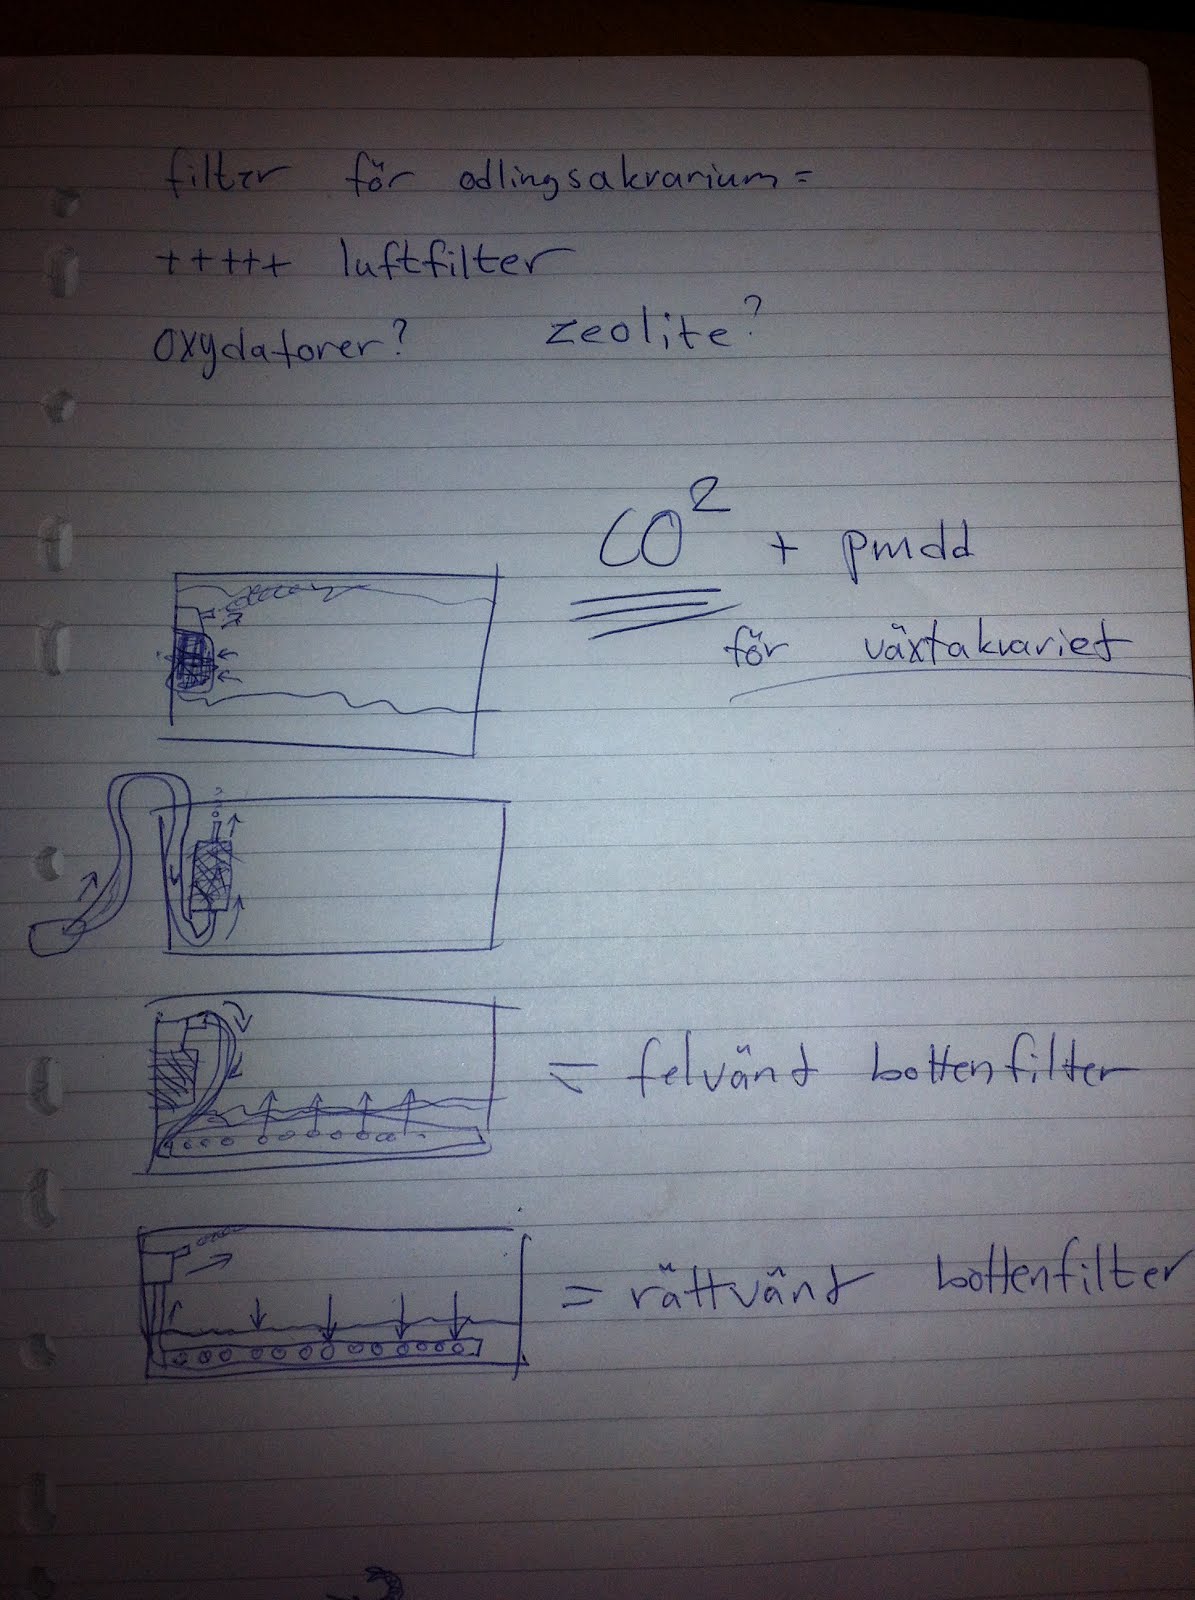 filter för odlingsakvarium =
+++++ luftfilter
oxydatorer? zeolite?
CO² + pmdd
för växtakvariet
= felvänt bottenfilter
= rättvänt bottenfilter